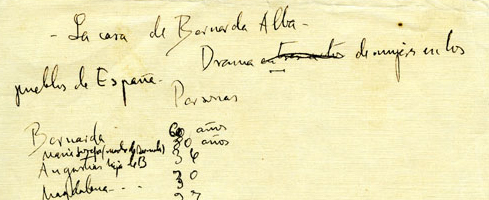 - La casa de Bernarda Alba -
Drama en tres actos de mujeres en los
pueblos de España.
Personas
Bernarda 60 años
Maria Josefa (madre de Bernarda) 80 años
Angustias hija de B
Magdalena - - -